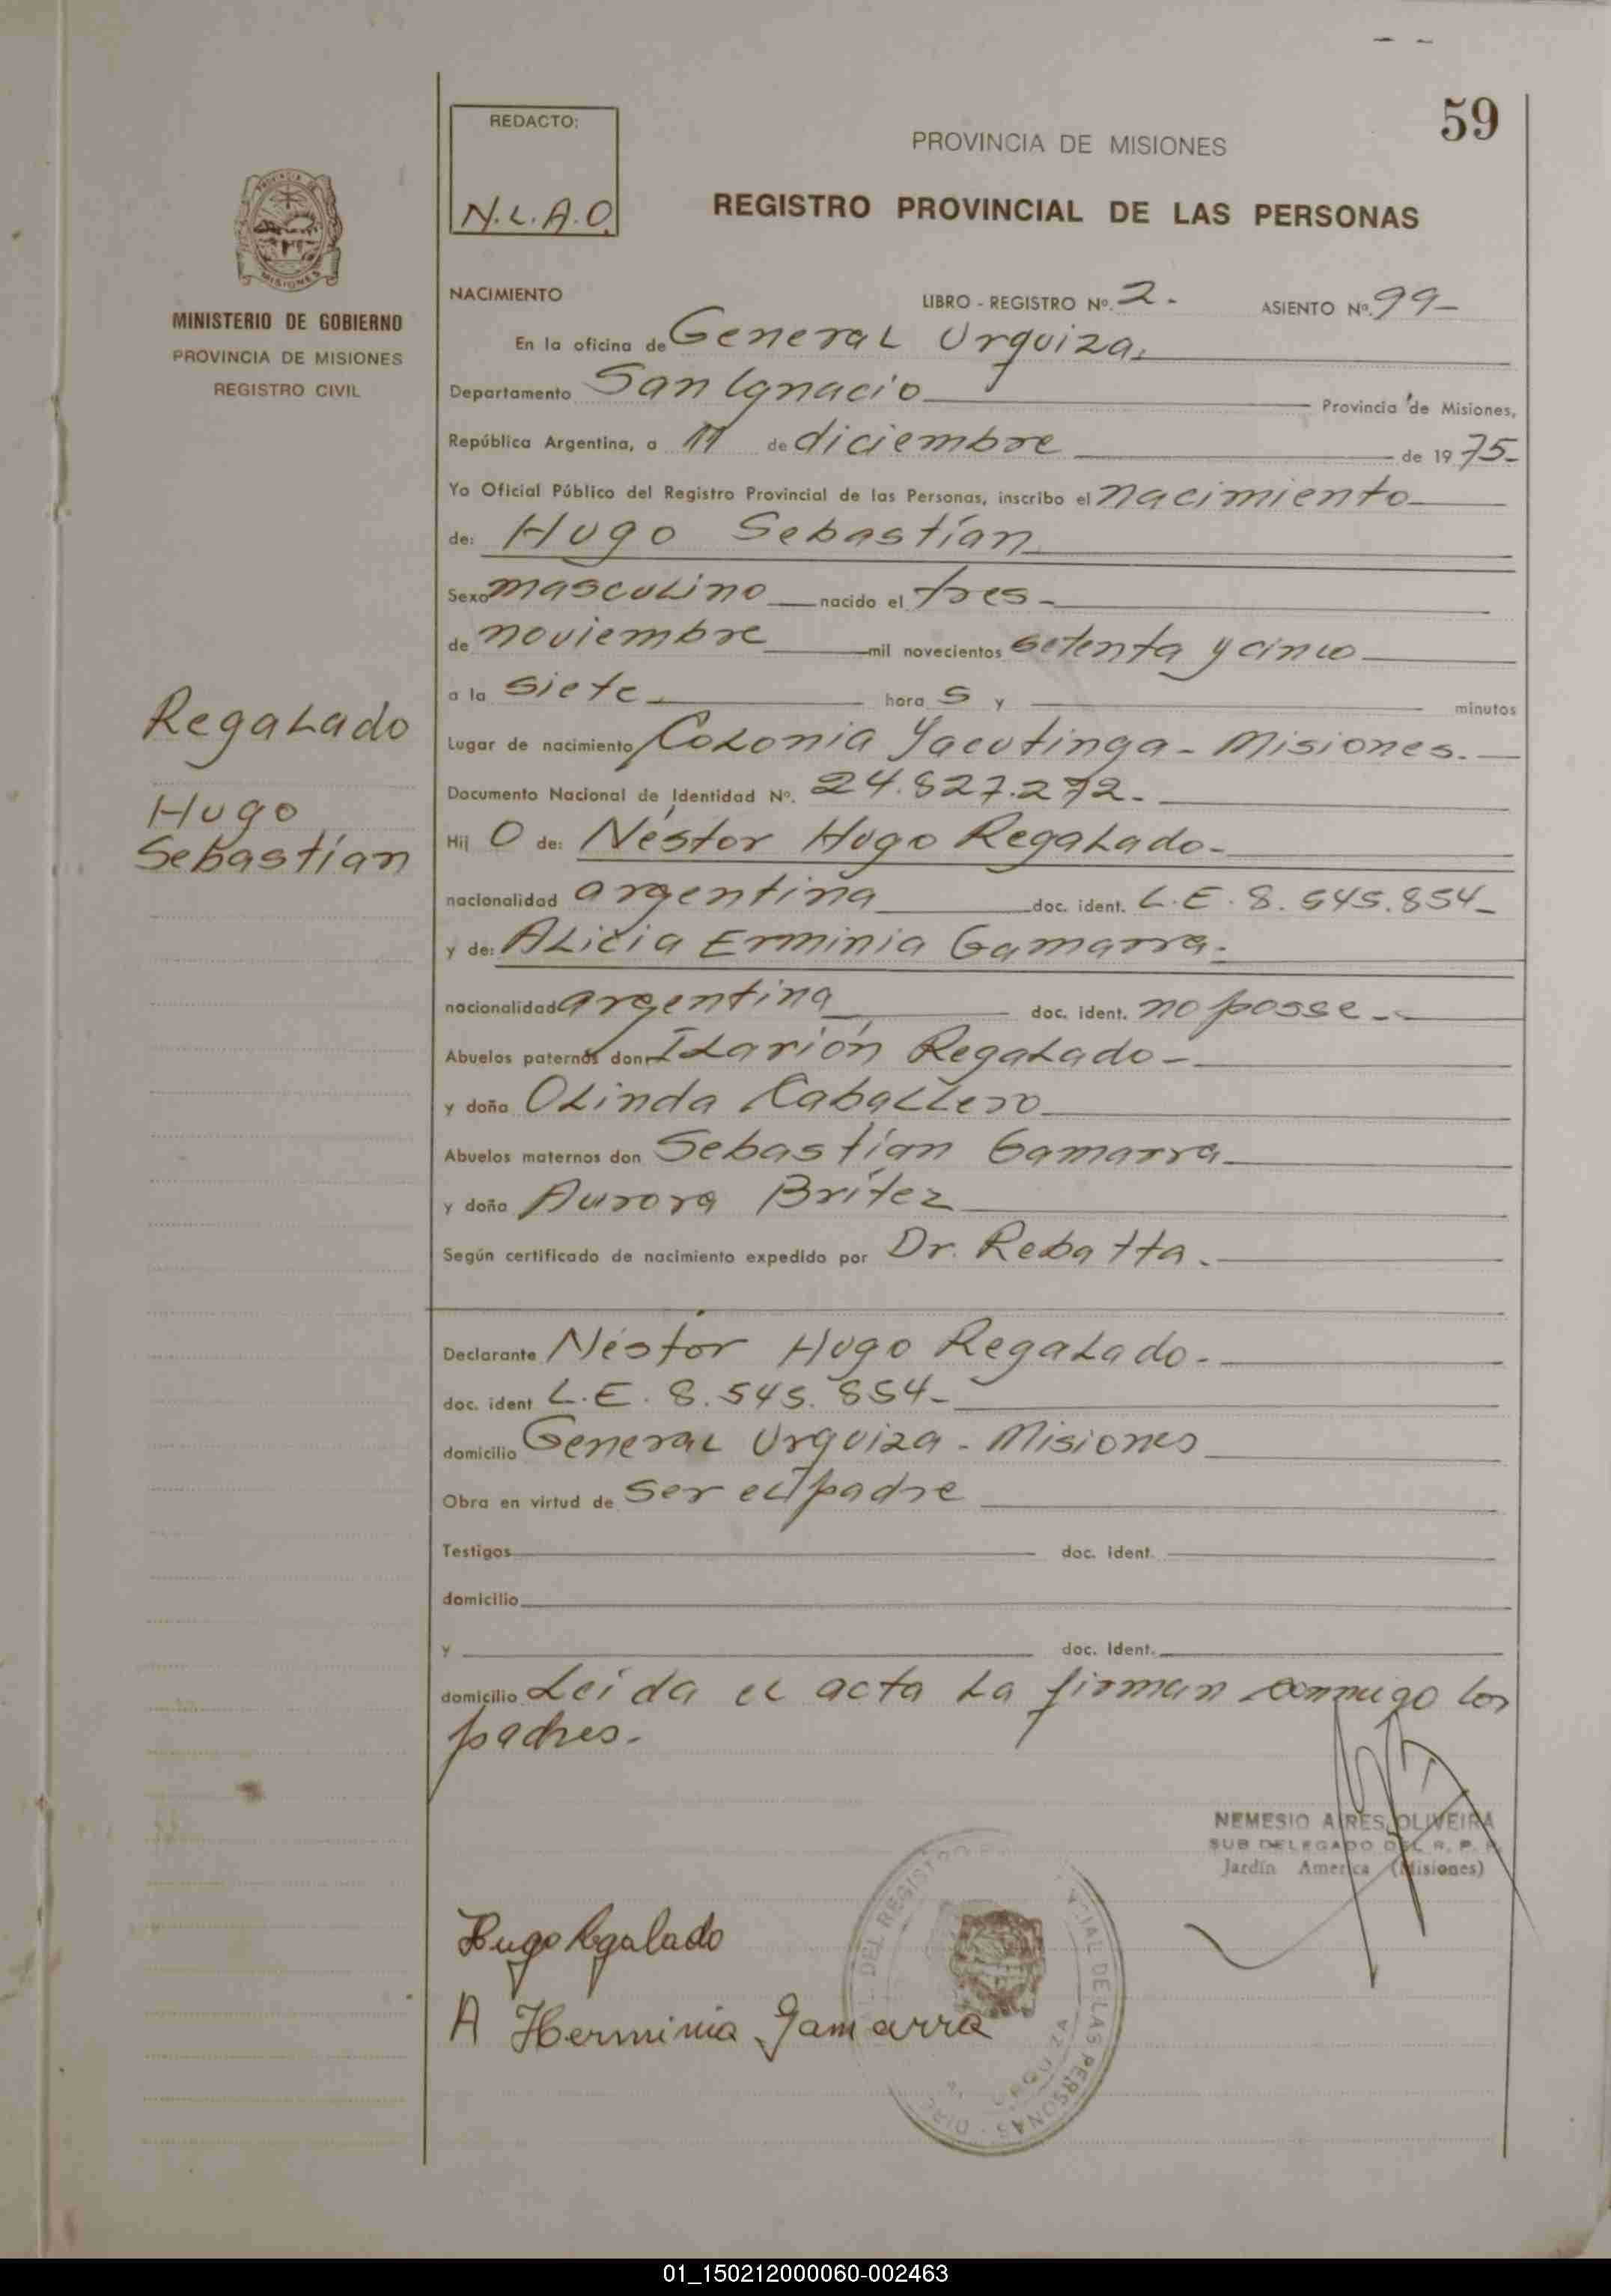 59
REDACTO:
N.L.A.O.
PROVINCIA DE MISIONES
REGISTRO PROVINCIAL DE LAS PERSONAS
MINISTERIO DE GOBIERNO
PROVINCIA DE MISIONES
REGISTRO CIVIL
Regalado
Hugo
Sebastían
NACIMIENTO LIBRO - REGISTRO Nº. 2.- ASIENTO Nº. 99-
En la oficina de General Urquiza,
Departamento San Ignacio Provincia de Misiones,
República Argentina, a 11 de diciembre de 1975-
Yo Oficial Público del Registro Provincial de las Personas, inscribo el nacimiento
de: Hugo Sebastían
Sexo masculino nacido el tres-
de noviembre mil novecientos setenta y cinco
a la siete hora s y minutos
Lugar de nacimiento Colonia Yacutinga - Misiones.-
Documento Nacional de Identidad Nº. 24.827.272.-
Hij o de: Néstor Hugo Regalado-
nacionalidad argentina doc. ident. L.E. 8.545.854-
y de: Alicia Erminia Gamarra-
nacionalidad argentina doc. ident. no posse.-
Abuelos paternos don Ilarión Regalado-
y doña Olinda Caballero
Abuelos maternos don Sebastían Gamarra
y doña Aurora Brítez
Según certificado de nacimiento expedido por Dr. Rebatta.
Declarante Néstor Hugo Regalado.-
doc. ident L.E. 8.545.854-
domicilio General Urquiza - Misiones
Obra en virtud de ser el padre
Testigos doc. ident.
domicilio
y doc. Ident.
domicilio Leída el acta la firman conmigo los
padres.-
NEMESIO AIRES OLIVEIRA
SUB DELEGADO DEL R. P. P.
Jardín America (Misiones)
Hugo Regalado
A Herminia Gamarra
DEL REGISTRO CIAL DE LAS PERSONAS
01_150212000060-002463